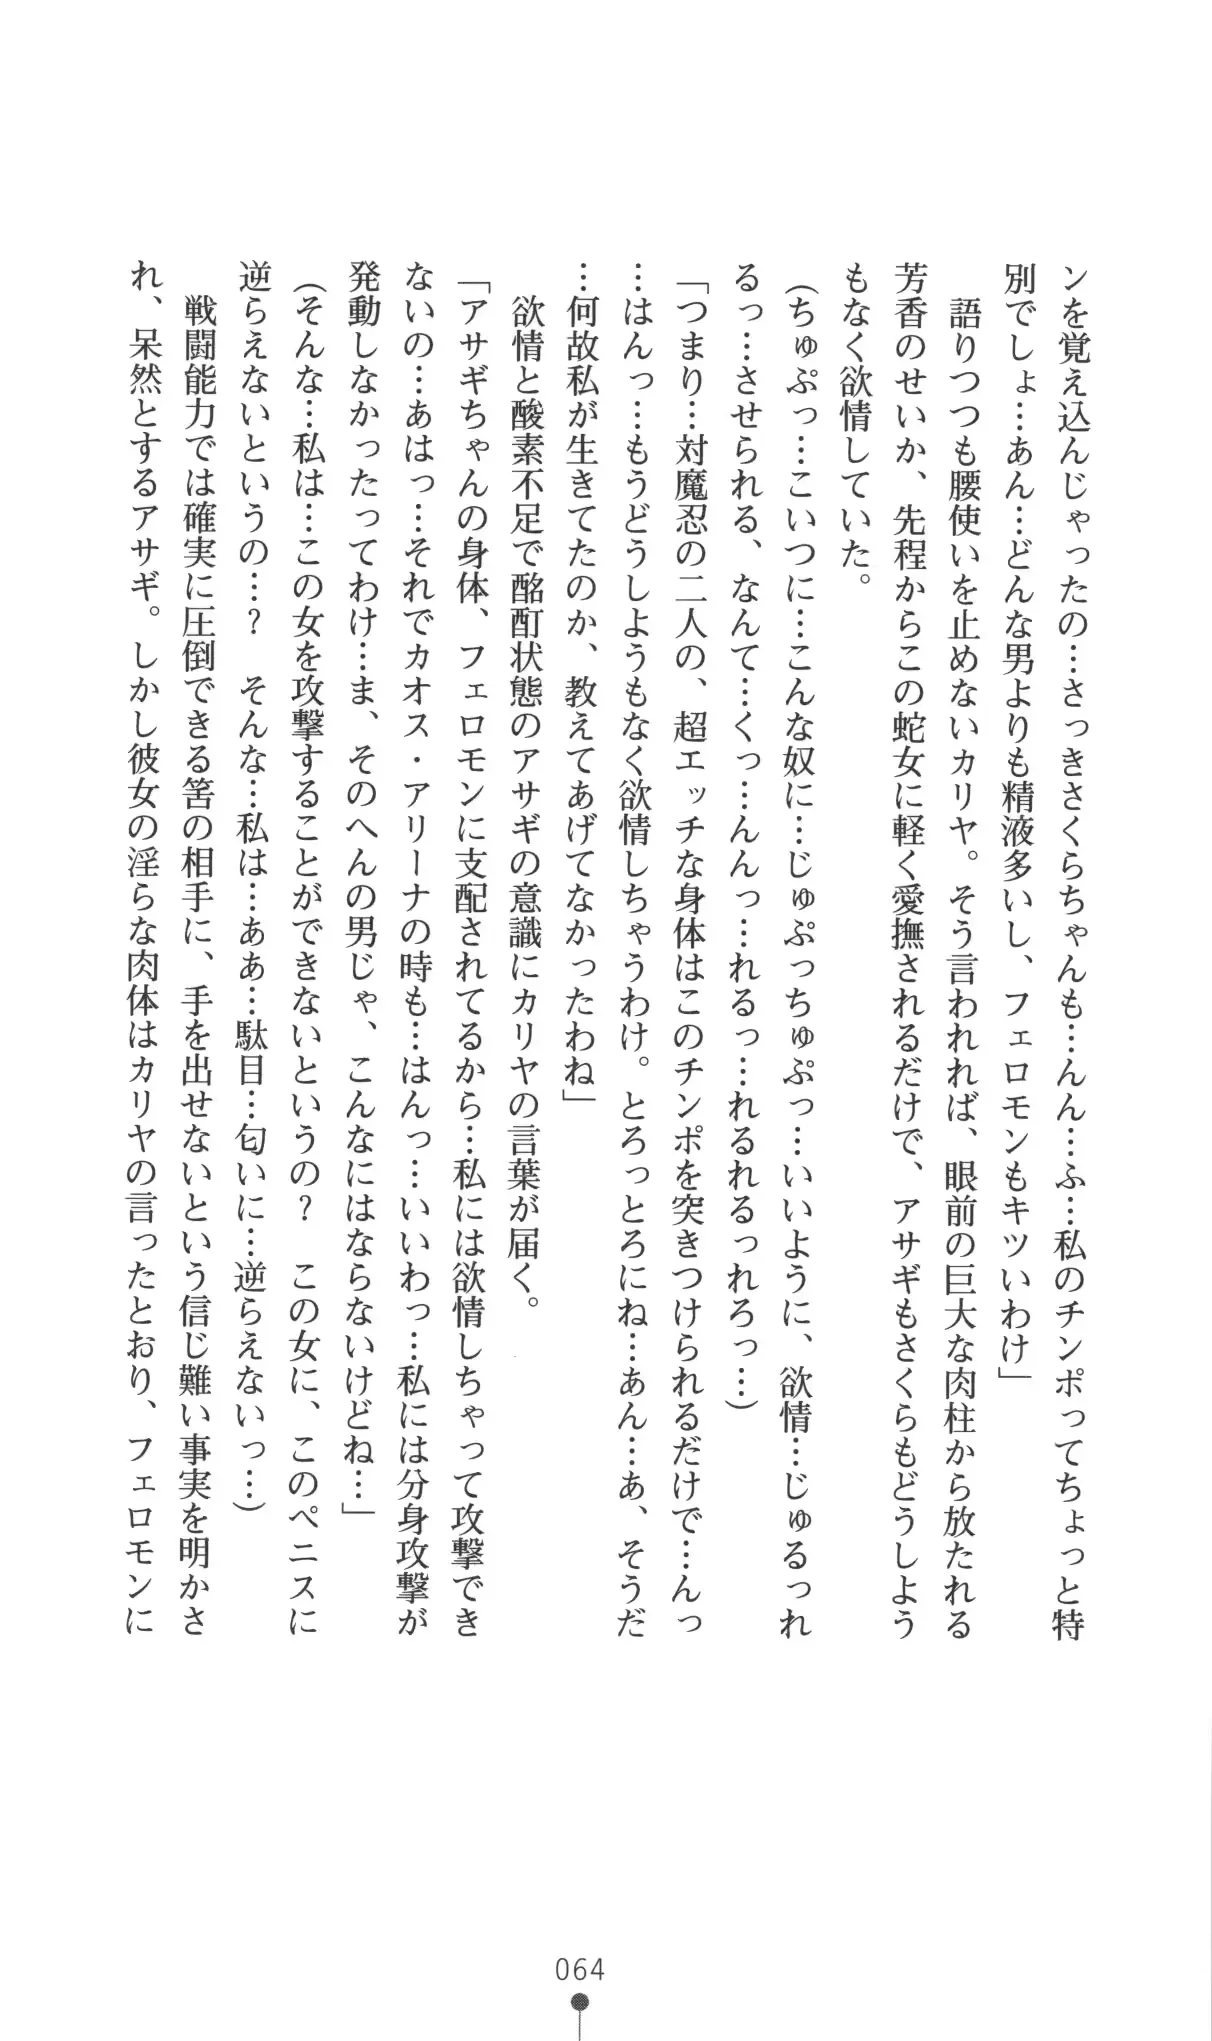 ンを覚え込んじゃったの…さっきさくらちゃんも…んん…ふ…私のチンポってちょっと特
別でしょ…あん…どんな男よりも精液多いし、フェロモンもキツいわけ」
　語りつつも腰使いを止めないカリヤ。そう言われれば、眼前の巨大な肉柱から放たれる
芳香のせいか、先程からこの蛇女に軽く愛撫されるだけで、アサギもさくらもどうしよう
もなく欲情していた。
（ちゅぷっ…こいつに…こんな奴に…じゅぷっちゅぷっ…いいように、欲情…じゅるっれ
るっ…させられる、なんて…くっ…んんっ…れるっ…れるれるっれろっ…）
「つまり…対魔忍の二人の、超エッチな身体はこのチンポを突きつけられるだけで…んっ
…はんっ…もうどうしようもなく欲情しちゃうわけ。とろっとろにね…あん…あ、そうだ
…何故私が生きてたのか、教えてあげてなかったわね」
　欲情と酸素不足で酩酊状態のアサギの意識にカリヤの言葉が届く。
「アサギちゃんの身体、フェロモンに支配されてるから…私には欲情しちゃって攻撃でき
ないの…あはっ…それでカオス・アリーナの時も…はんっ…いいわっ…私には分身攻撃が
発動しなかったってわけ…ま、そのへんの男じゃ、こんなにはならないけどね…」
（そんな…私は…この女を攻撃することができないというの？　この女に、このペニスに
逆らえないというの…？　そんな…私は…ああ…駄目…匂いに…逆らえないっ…）
　戦闘能力では確実に圧倒できる筈の相手に、手を出せないという信じ難い事実を明かさ
れ、呆然とするアサギ。しかし彼女の淫らな肉体はカリヤの言ったとおり、フェロモンに
064